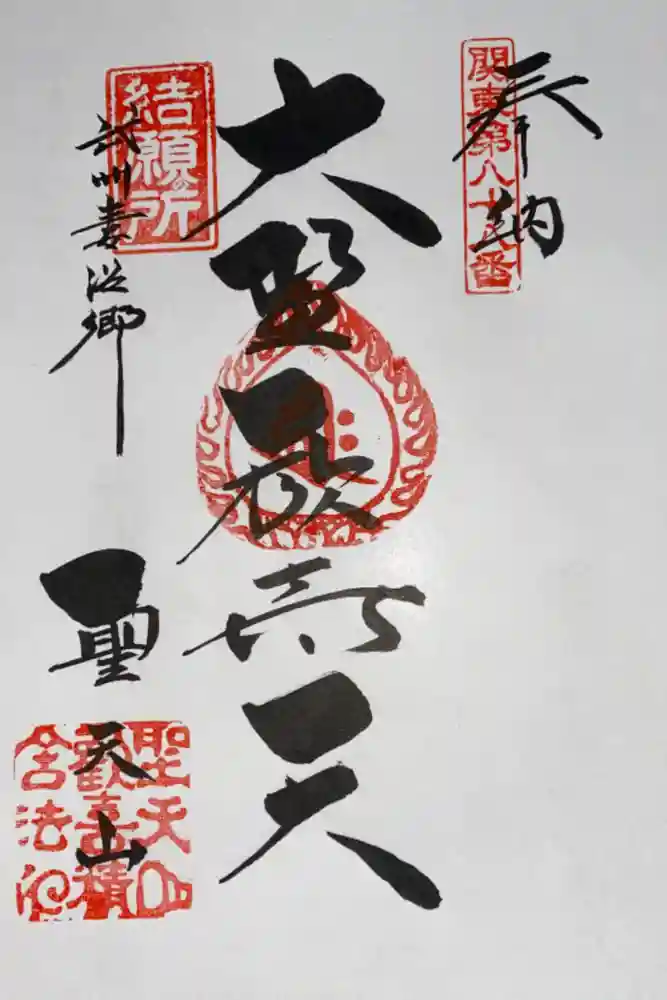 奉納
関東第八十八番
大聖歓喜天
結願の所
武州妻沼郷
聖天山
聖天山
歡喜精
舎法印